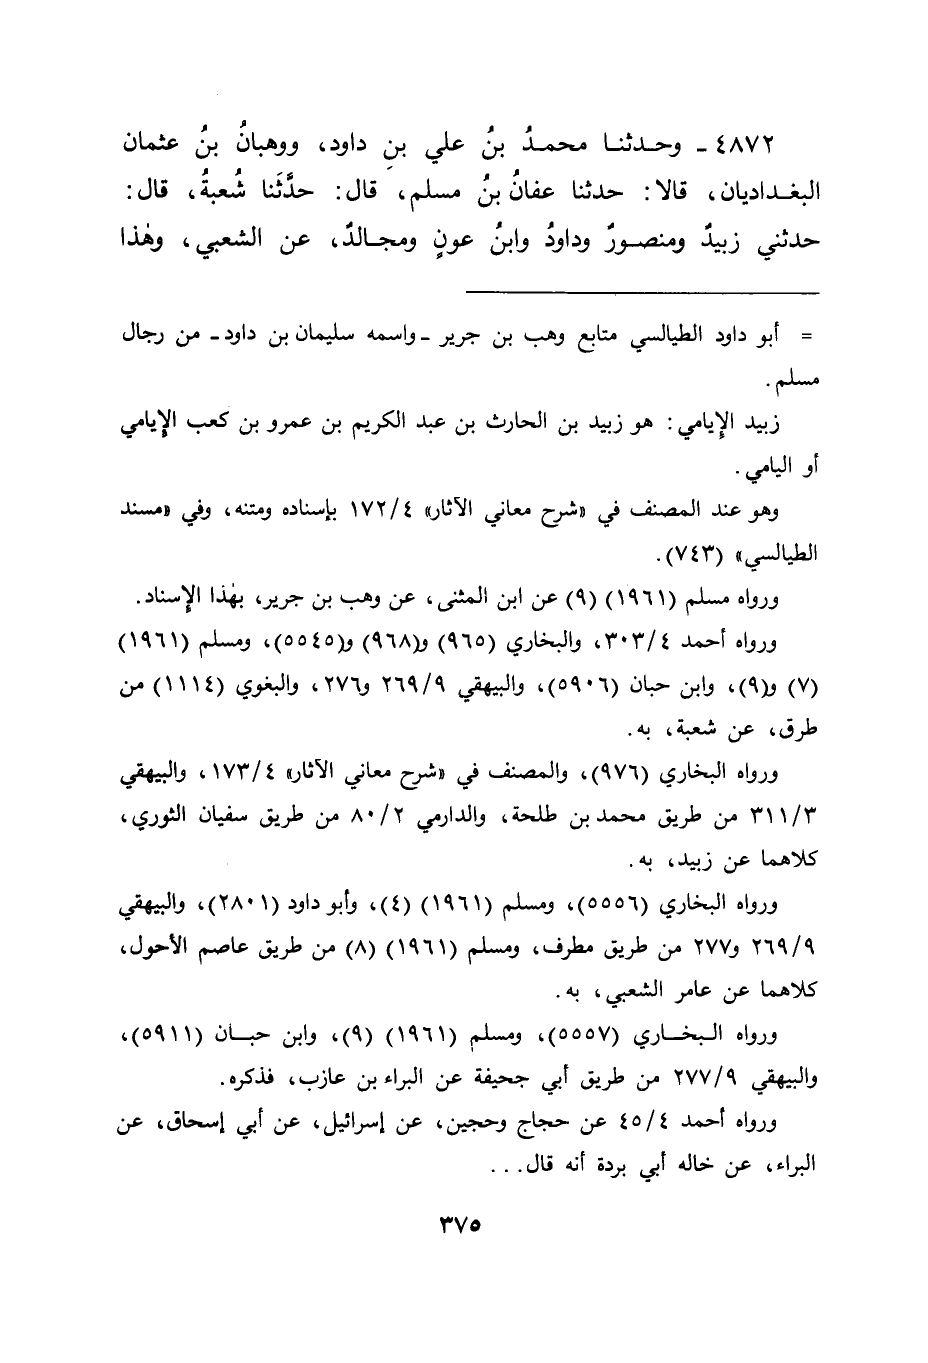 ٤٨٧٢ ـ وحـدثنـا محمـدُ بنُ علي بنِ داود، ووهبانُ بنُ عثمان
البغـداديان، قالا: حدثنا عفانُ بنُ مسلم، قال: حدَّثَنا شُعبةُ، قال:
حدثني زبيدٌ ومنصـورٌ وداودُ وابنُ عونٍ ومجـالدٌ، عن الشعبي، وهٰذا
= أبو داود الطيالسي متابع وهب بن جرير ـ واسمه سليمان بن داود ـ من رجال
مسلم.
زبيد الإيامي: هو زبيد بن الحارث بن عبد الكريم بن عمرو بن كعب الإيامي
أو اليامي.
وهو عند المصنف في «شرح معاني الآثار» ١٧٢/٤ بإسناده ومتنه، وفي «مسند
الطيالسي» (٧٤٣).
ورواه مسلم (١٩٦١) (٩) عن ابن المثنى، عن وهب بن جرير، بهٰذا الإسناد.
ورواه أحمد ٣٠٣/٤، والبخاري (٩٦٥) و(٩٦٨) و(٥٥٤٥)، ومسلم (١٩٦١)
(٧) و(٩)، وابن حبان (٥٩٠٦)، والبيهقي ٢٦٩/٩ و٢٧٦، والبغوي (١١١٤) من
طرق، عن شعبة، به.
ورواه البخاري (٩٧٦)، والمصنف في «شرح معاني الآثار» ١٧٣/٤، والبيهقي
٣١١/٣ من طريق محمد بن طلحة، والدارمي ٨٠/٢ من طريق سفيان الثوري،
كلاهما عن زبيد، به.
ورواه البخاري (٥٥٥٦)، ومسلم (١٩٦١) (٤)، وأبو داود (٢٨٠١)، والبيهقي
٢٦٩/٩ و٢٧٧ من طريق مطرف، ومسلم (١٩٦١) (٨) من طريق عاصم الأحول،
كلاهما عن عامر الشعبي، به.
ورواه الـبخـــاري (٥٥٥٧)، ومسلم (١٩٦١) (٩)، وابن حبـــان (٥٩١١)،
والبيهقي ٢٧٧/٩ من طريق أبي جحيفة عن البراء بن عازب، فذكره.
ورواه أحمد ٤٥/٤ عن حجاج وحجين، عن إسرائيل، عن أبي إسحاق، عن
البراء، عن خاله أبي بردة أنه قال...
٣٧٥